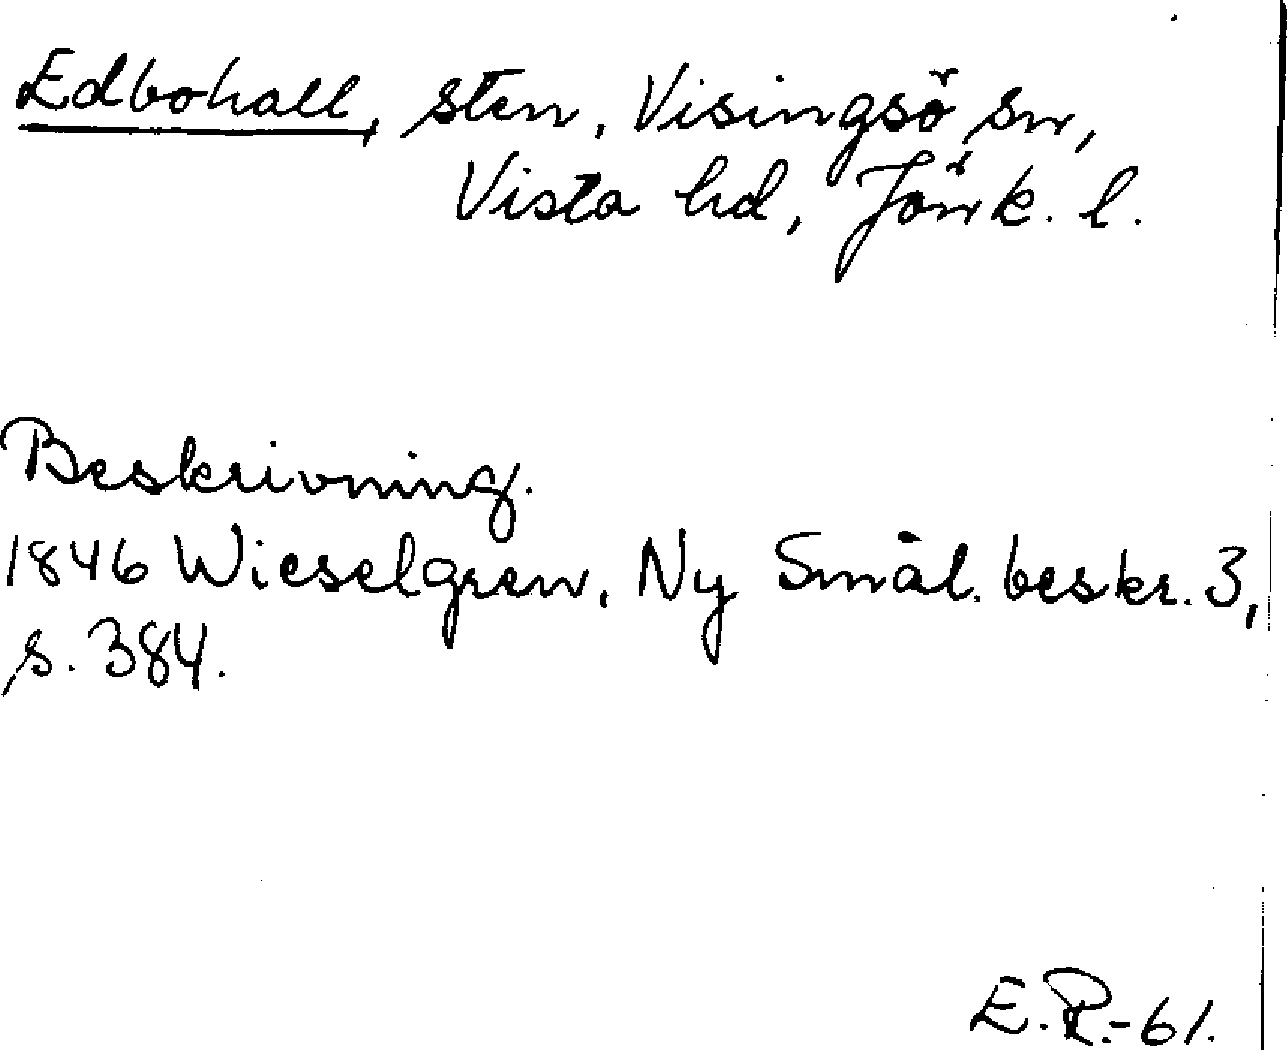 Edbohall, sten, Visingsö sn,
Vista hd, Jönk. l.
Beskrivning.
1846 Wieselgren, Ny Smål. beskr. 3,
s. 384.
E.R.-61.